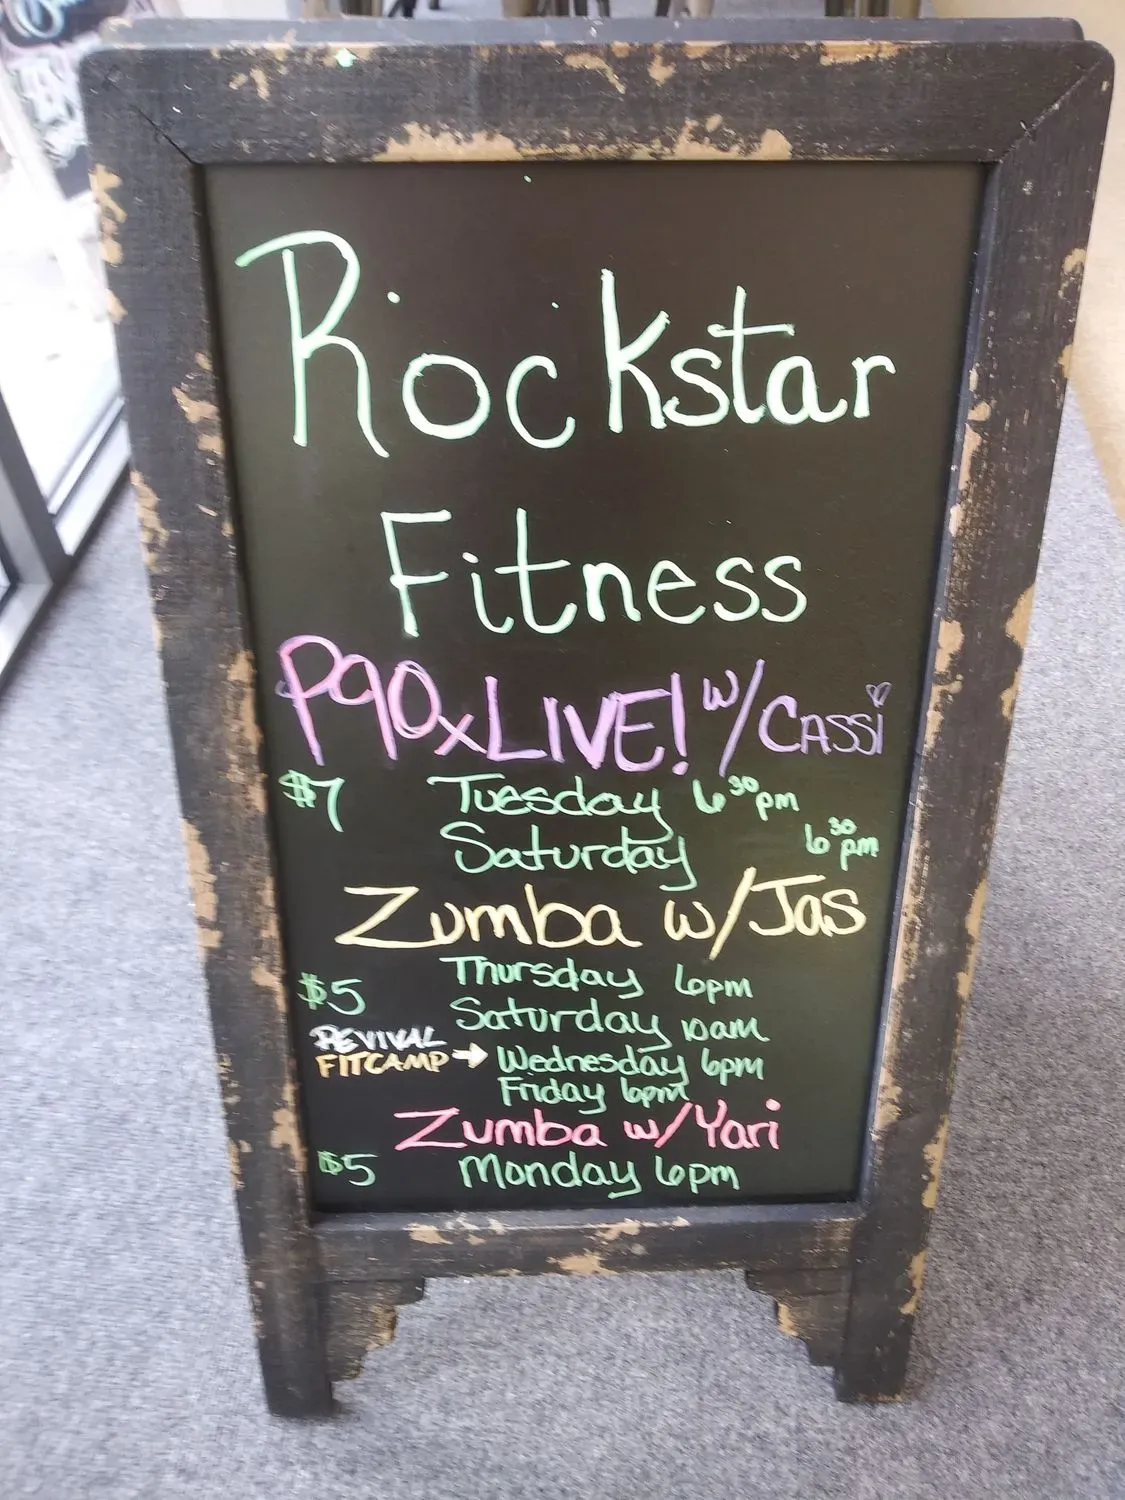 Rockstar
Fitness
P90x LIVE! w/ CASSi
$7 Tuesday 6³⁰pm
Saturday 6³⁰pm
Zumba w/Jas
Thursday 6pm
$5 Saturday 10am
REVIVAL
FITCAMP → Wednesday 6pm
Friday 6pm
Zumba w/Yari
$5 Monday 6pm